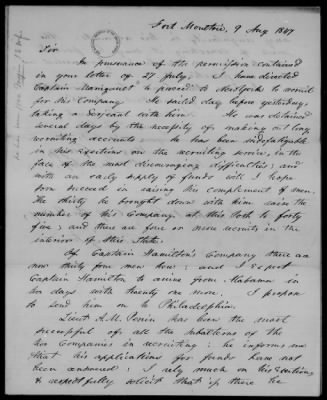 Fort Moultrie, 9 Aug 1847
Sir
In pursuance of the permission contained
in your letter of 27 July, I have directed
Captain to proceed to New York to recruit
for his Company. He sailed day before yesterday,
taking a Sergeant with him. He was detained
several days by the necessity of making out long
recruiting accounts. He has been indefatigable
in his exertions on the recruiting service, in the
face of the most discouraging difficulties; and
with an early supply of funds will I hope
soon succeed in raising his complement of men.
The thirty he brought down with him raise the
number of his Company at this Post to forty
five; and there are four or more recruits in the
interior of this State.
Of Captain Hamilton's Company there are
now thirty four men here; and I expect
Captain Hamilton to arrive from Alabama in
two days with twenty one more. I propose
to send him on to Philadelphia.
Lieut K. M. has been the most
successful of all the subalterns of the
two Companies in recruiting: he informs me
that his applications for funds have not
been answered: I rely much on his exertions
& respectfully solicit that if there be